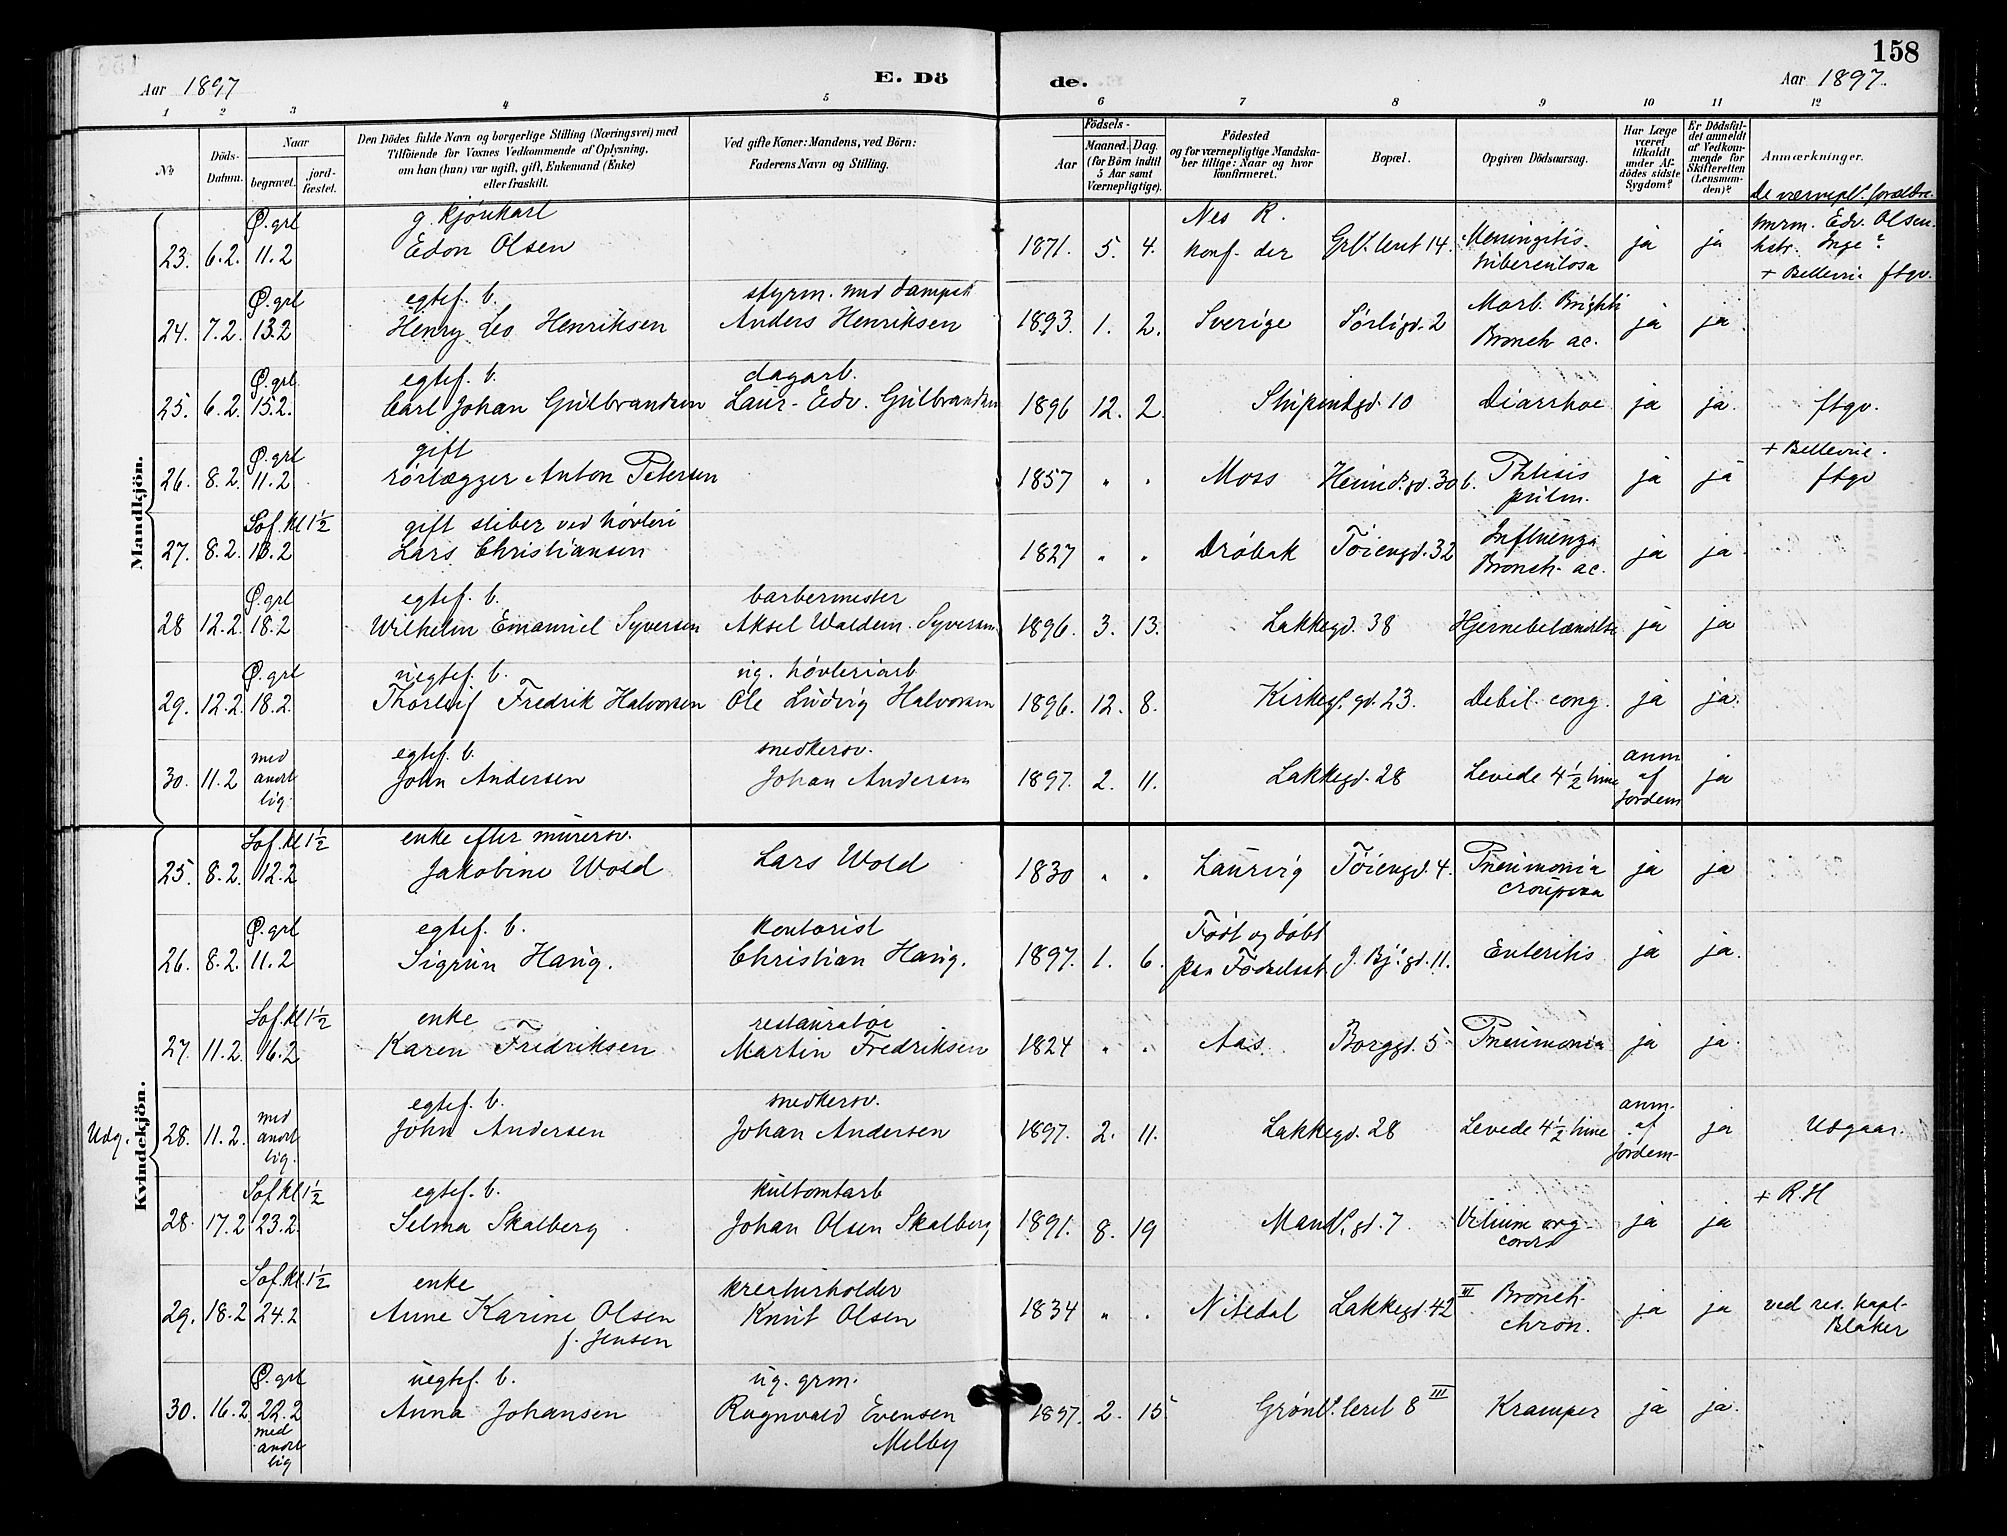 158
Aar 1897
E. Dö
de.
Aar 1897.
1 2 3 4 5 6 7 8 9 10 11 12
No
Döds-Datum.
Naar
begravet.
jord-fæstet.
Den Dödes fulde Navn og borgerlige Stilling (Næringsvei) med
Tilföiende for Voxnes Vedkommende af Oplysning,
om han (hun) var ugift, gift, Enkemand (Enke)
eller fraskilt.
Ved gifte Koner: Mandens, ved Börn:
Faderens Navn og Stilling.
Födsels-
Aar
Maaned. Dag.
(for Börn indtil
5 Aar samt
Værnepligtige).
Födested
og for værnepligtige Mandska-
ber tillige: Naar og hvor
konfirmeret.
Bopæl.
Opgiven Dödsaarsag.
Har Læge
været
tilkaldt
under Af-
dödes sidste
Sygdom?
Er Dödsfal-
det anmeldt
af Vedkom-
mende for
Skifteretten
(Lensman-
den)?
Anmærkninger.
De værnepl.s forældre
Mandkjön.
23. 6.2. Ø.grl 11.2 g. Edon Olsen 1871. 5. 4. Nes R. Konf. der Grl.s leret 14. Meningitis tuberculosa ja ja Edv. Olsen Inge? + Bellevue ftgv.
24. 7.2. Ø.grl 13.2 egtef. b. Henry Leo Henriksen styrm. med dampsk Anders Henriksen 1893. 1. 2. Sverige Sörligd. 2 Morb. Brightii Bronch ac. ja ja
25. 6.2. Ø.grl. 15.2. egtef. b. Carl Johan Gulbrandsen dagarb. Laur. Edv. Gulbrandsen 1896 12. 2. Stupendgd. 10 Diarrhoe ja ja. ftgv.
26. 8.2. Ø.grl 11.2 gift rörlægger Anton Petersen 1857 " " Moss Heimd.gd. 30 b. Phtisis pulm. ja ja + Bellevue. ftgv
27. 8.2. Sof. kl 1½ 13.2 gift sliber ved hövleri Lars Christiansen 1827 " " Dröbak Töiengd. 32 Influenza Bronch. ac. ja ja.
28 12.2. Ø.grl 18.2 egtef. b. Wilhelm Emanuel Syversen barbermester Aksel Waldem. Syversen 1896. 3. 13. Lakkegd. 38 Hjernebetændelse ja ja
29. 12.2. Ø.grl 18.2. uegtef. b. Thorleif Fredrik Halvorsen ug. hövleriarb Ole Ludvig Halvorsen 1896. 12. 8. Kirkeg. gd. 23. Debil. cong. ja ja.
30. 11.2 med anort lig. egtef. b. John Andersen snedkersv. Johan Andersen 1897. 2. 11. Lakkegd. 28 Levede 4½ time anm af jordem ja
Kvindekjön.
25. 8.2. Sof. kl 1½ 12.2 enke efter murersv. Jakobine Wold Lars Wold 1830 " " Laurvig Töiengd. 4. Pneumonia crouposa ja ja
26. 8.2. Ø.grl 11.2 egtef. b. Sigrun Haug. kontorist Christian Haug. 1897. 1. 6. Födt og döbt paa Födselsst J. Bj. gd. 11. Enteritis ja ja.
27. 11.2. Sof. kl 1½ 16.2 enke Karen Fredriksen restauratör Martin Fredriksen 1824 " " Aas. Borggd. 5 Pneumonia ja ja.
Udg. 28. 11.2. med anort lig. egtef. b. John Andersen snedkersv. Johan Andersen 1897. 2. 11. Lakkegd. 28 Levede 4½ time anm. af jordem- ja Udgaar.
28. 17.2 Sof kl 1½ 23.2. egtef. b. Selma Skalberg kultomtarb Johan Olsen Skalberg 1891. 8. 19 Mandl. gd. 7. Vitium org. cordis ja ja + R.H
29. 18.2 Sof. kl. 1½ 24.2 enke Anne Karine Olsen f. Jensen kreaturholder Knut Olsen 1834 " " Nitedal Lakkegd. 42 III Bronch. chron. ja ja ved res. kapl. Blaker
30. 16.2 Ø.grl 22.2 med anort lig uegtef. b. Anna Johansen ug. grm. Ragnvald Evensen Melby 1897. 2. 15 Grönl.s leret 8 III Kramper ja ja.